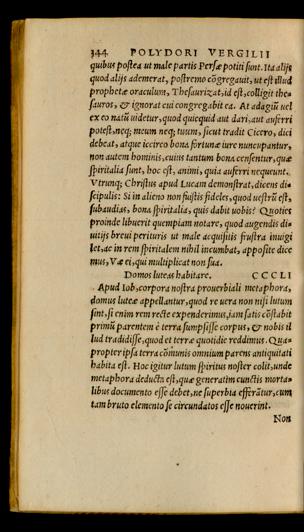 344 POLYDORI VERGILII
quibus postea ut male partis Persæ potiti sunt. Ita alijs
quod alijs ademerat, postremo cōgregauit, ut est illud
prophetæ oraculum, Thesaurizat, id est, colligit the-
sauros, & ignorat cui congregabit ea. At adagiū uel
ex eo natū uidetur, quod quicquid aut dari, aut auferri
potest, neq; meum neq; tuum, sicut tradit Cicero, dici
debeat, atque iccirco bona fortunæ iure nuncupantur,
non autem hominis, cuius tantum bona censentur, quæ
spiritalia sunt, hoc est, animi, quia auferri nequeunt.
Vtrunq; Christus apud Lucam demonstrat, dicens di-
scipulis: Si in alieno non fuistis fideles, quod uestrū est,
subaudias, bona spiritalia, quis dabit uobis? Quoties
proinde libuerit quempiam notare, quod augendis di-
uitijs breui perituris ut male acquisitis frustra inuigi
let, ac in rem spiritalem nihil incumbat, apposite dice
mus, Væ ei, qui multiplicat non sua.
Domos luteas habitare. CCCLI
Apud Iob, corpora nostra prouerbiali metaphora,
domus luteæ appellantur, quod re uera non nisi lutum
sint, si enim rem recte expenderimus, iam satis cōstabit
primū parentem è terra sumpsisse corpus, & nobis il
lud tradidisse, quod et terræ quotidie reddimus. Qua-
propter ipsa terra cōmunis omnium parens antiquitati
habita est. Hoc igitur lutum spiritus noster colit, unde
metaphora deducta est, quæ generatim cunctis morta-
libus documento esse debet, ne superbia efferātur, cum
tam bruto elemento se circundatos esse nouerint.
Non